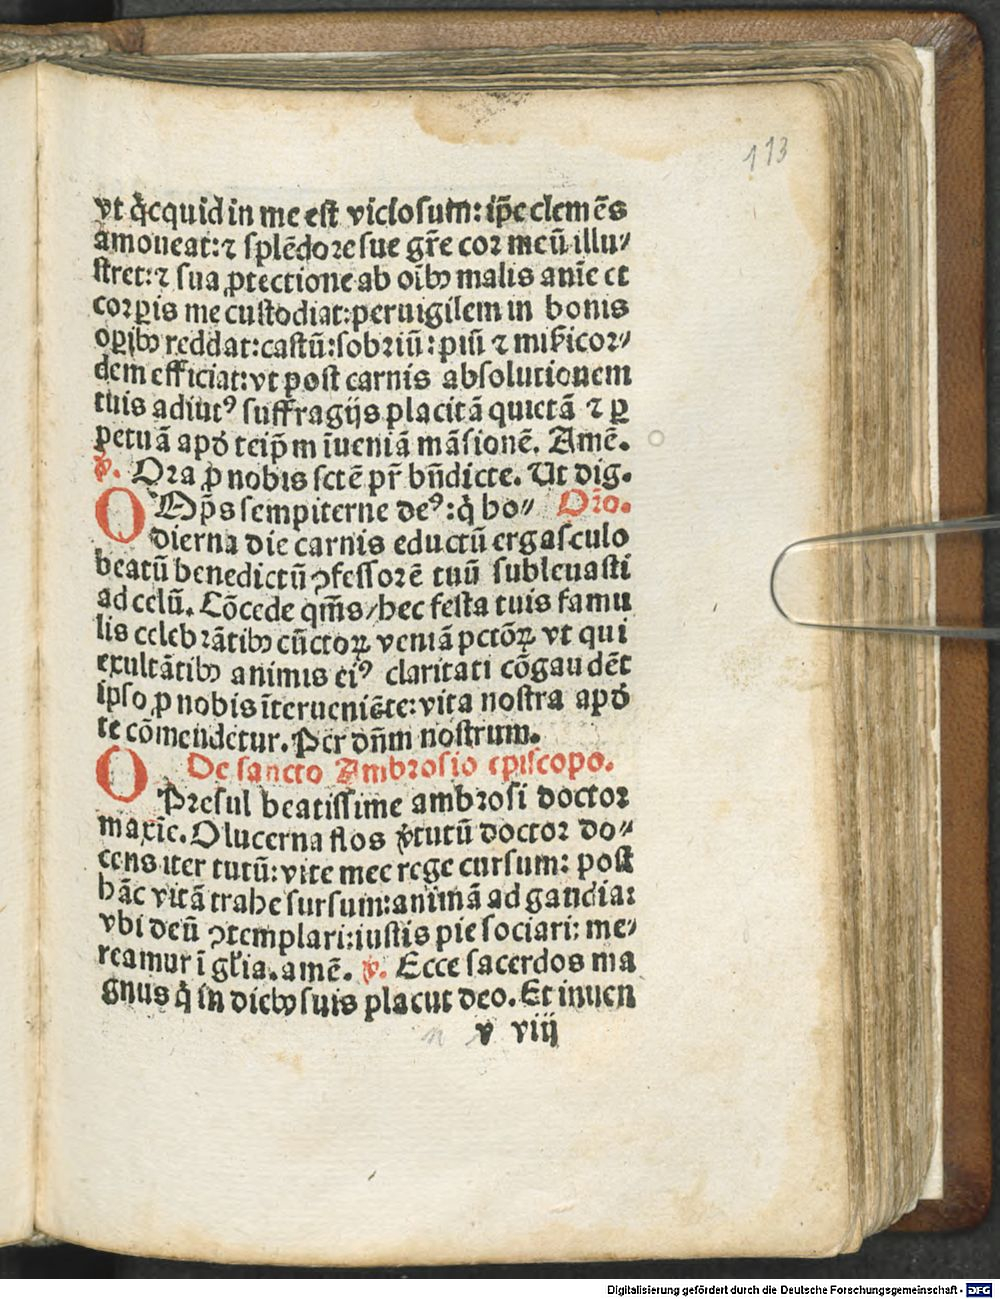 113
vt q̇cquid in me est viciosum: ip̄e clemēs
amoueat: ⁊ splēdore sue gr̄e cor meū illu⸗
stret: ⁊ sua ꝓtectione ab oībꝫ malis anīe et
corꝑis me custodiat: peruigilem in bonis
oꝑibꝫ reddat: castū: sobriū: piū ⁊ mīẜicor⸗
dem efficiat: vt post carnis absolutionem
tuis adiutꝰ suffragijs placitā quietā ⁊ ꝑ
petuā apđ teip̄m īueniā māsionē. Amē.
℣. Ora ꝓ nobis sctē pr̄ bn̄dicte. Ut dig.
OMp̄s sempiterne deꝰ: q̇ ho⸗ Or̄o.
dierna die carnis eductū ergasculo
beatū benedictū ꝯfessorē tuū subleuasti
ad celū. Cōcede qm̄s / hec festa tuis famu
lis celebrātibꝫ cūctoꝝ veniā pctōꝝ vt qui
exultātibꝫ animis eiꝰ claritati cōgaudēt
ipso ꝓ nobis īterueniēte: vita nostra apđ
te cōmendetur. Per dn̄m nostrum.
De sancto Ambrosio episcopo.
O Presul beatissime ambrosi doctor
maxīe. O lucerna flos v̇tutū doctor do⸗
cens iter tutū: vite mee rege cursum: post
hāc vitā trahe sursum: animā ad gaudia:
vbi deū ꝯtemplari: iustis pie sociari: me⸗
reamur ī gl̄ia. amē. ℣. Ecce sacerdos ma
gnus q̇ in diebꝫ suis placut deo. Et inuen
v viij
Digitalisierung gefördert durch die Deutsche Forschungsgemeinschaft - DFG